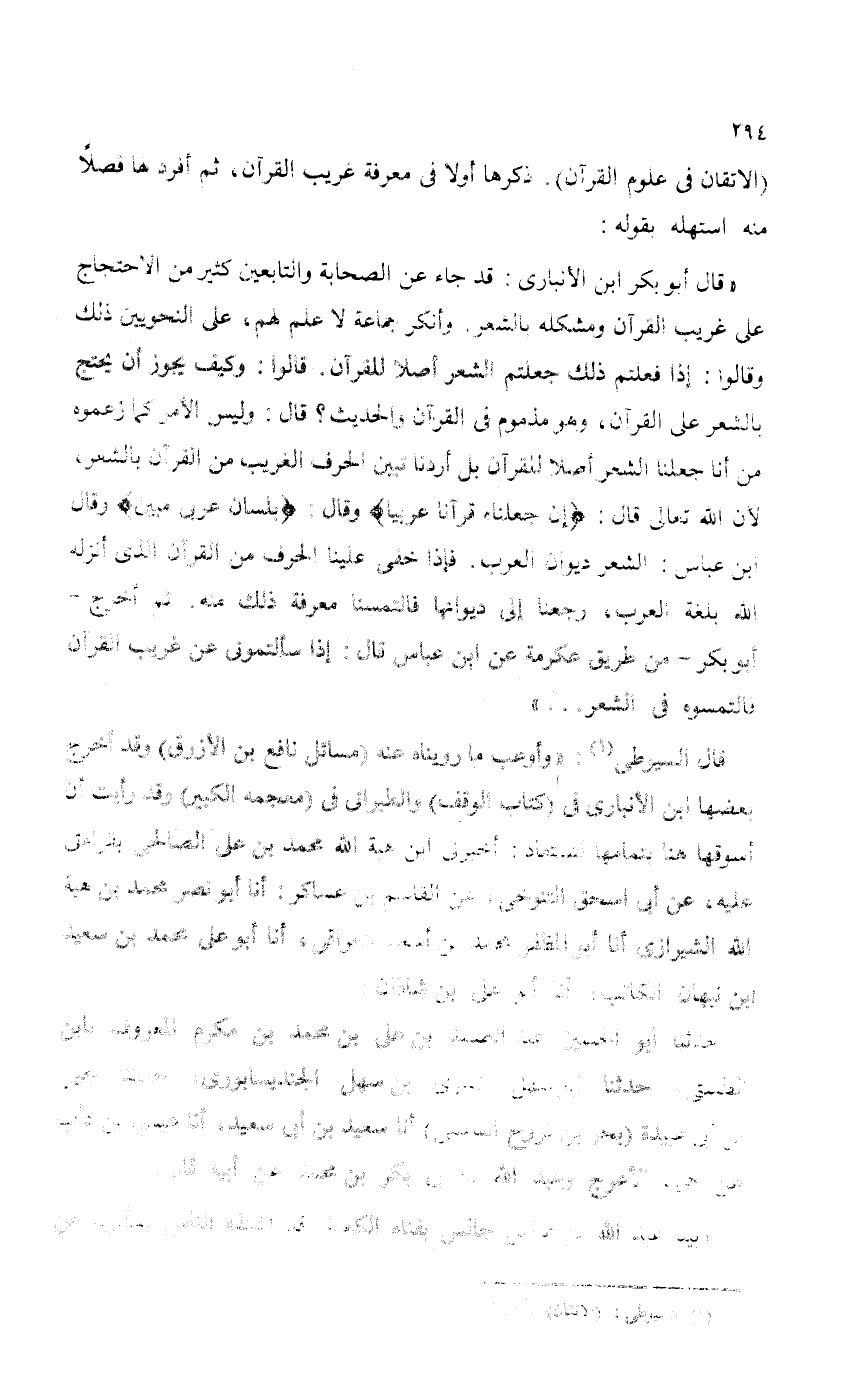 ٢٩٤
(الاتقان فى علوم القرآن). ذكرها أولا فى معرفة غريب القرآن، ثم أفرد لها فصلًا
منه استهله بقوله :
« قال أبو بكر ابن الأنبارى : قد جاء عن الصحابة والتابعين كثير من الاحتجاج
على غريب القرآن ومشكله بالشعر. وأنكر جماعة لا علم لهم، على النحويين ذلك
وقالوا : إذا فعلتم ذلك جعلتم الشعر أصلا للقرآن. قالوا : وكيف يجوز أن يحتج
بالشعر على القرآن، وهو مذموم فى القرآن والحديث؟ قال : وليس الأمر كما زعموه
من أنا جعلنا الشعر أصلا للقرآن بل أردنا تبين الحرف الغريب من القرآن بالشعر،
لأن الله تعالى قال : ﴿إن جعلناه قرآنا عربيا﴾ وقال : ﴿بلسان عربى مبين﴾ وقال
ابن عباس : الشعر ديوان العرب. فإذا خفى علينا الحرف من القرآن الذى أنزله
الله بلغة العرب، رجعنا إلى ديوانها فالتمسنا معرفة ذلك منه. ثم أخرج -
أبو بكر - من طريق عكرمة عن ابن عباس قال : إذا سألتمونى عن غريب القرآن
فالتمسوه فى الشعر... »
قال السيوطى(١) : « وأوعب ما رويناه عنه (مسائل نافع بن الأزرق) وقد أخرج
بعضها ابن الأنبارى فى (كتاب الوقف) والطبرانى فى (معجمه الكبير) وقد رأيت أن
أسوقها هنا بتمامها لتستفاد : أخبرنى ابن هبة الله محمد بن على الصالحى بقراءتى
عليه، عن أبى اسحق التنوخى، عن القاسم بن عساكر : أنا أبو نصر محمد بن هبة
الله الشيرازى أنا أبو المظفر محمد بن أسعد العراقى، أنا أبو على محمد بن سعيد
ابن نبهان الكاتب، أنا أبو على بن شاذان :
حدثنا أبو الحسين عبد الصمد بن على بن محمد بن مكرم المعروف بابن
الطستى، حدثنا أبو سهل السرى بن سهل الجنديسابورى،
عبيدة (بحر بن فروح) أنا سعيد بن أبى سعيد، أنا عيسى بن دأب
عن الأعرج وعبد الله بن أبى بكر بن محمد عن أبيه قال
عبد الله بن عباس جالس بفناء الكعبة قد اكتنفه الناس يسألونه عن
(١) السيوطى : (الاتقان)